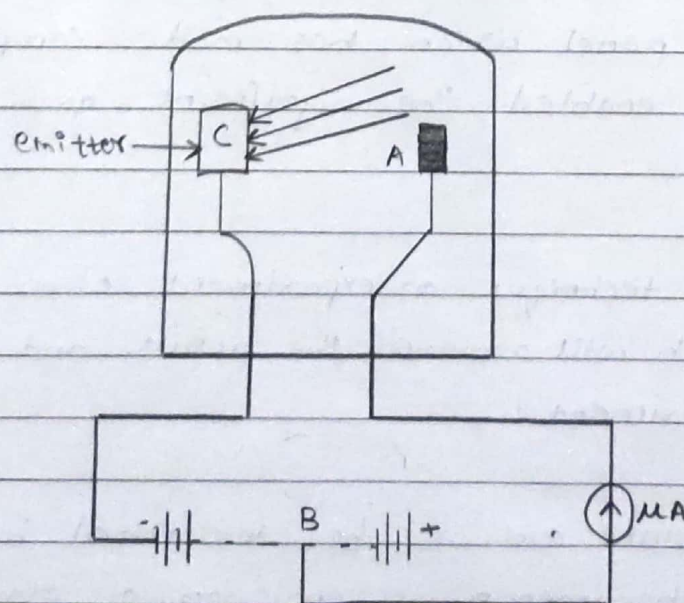 emitter
C
A
B
- +
µA